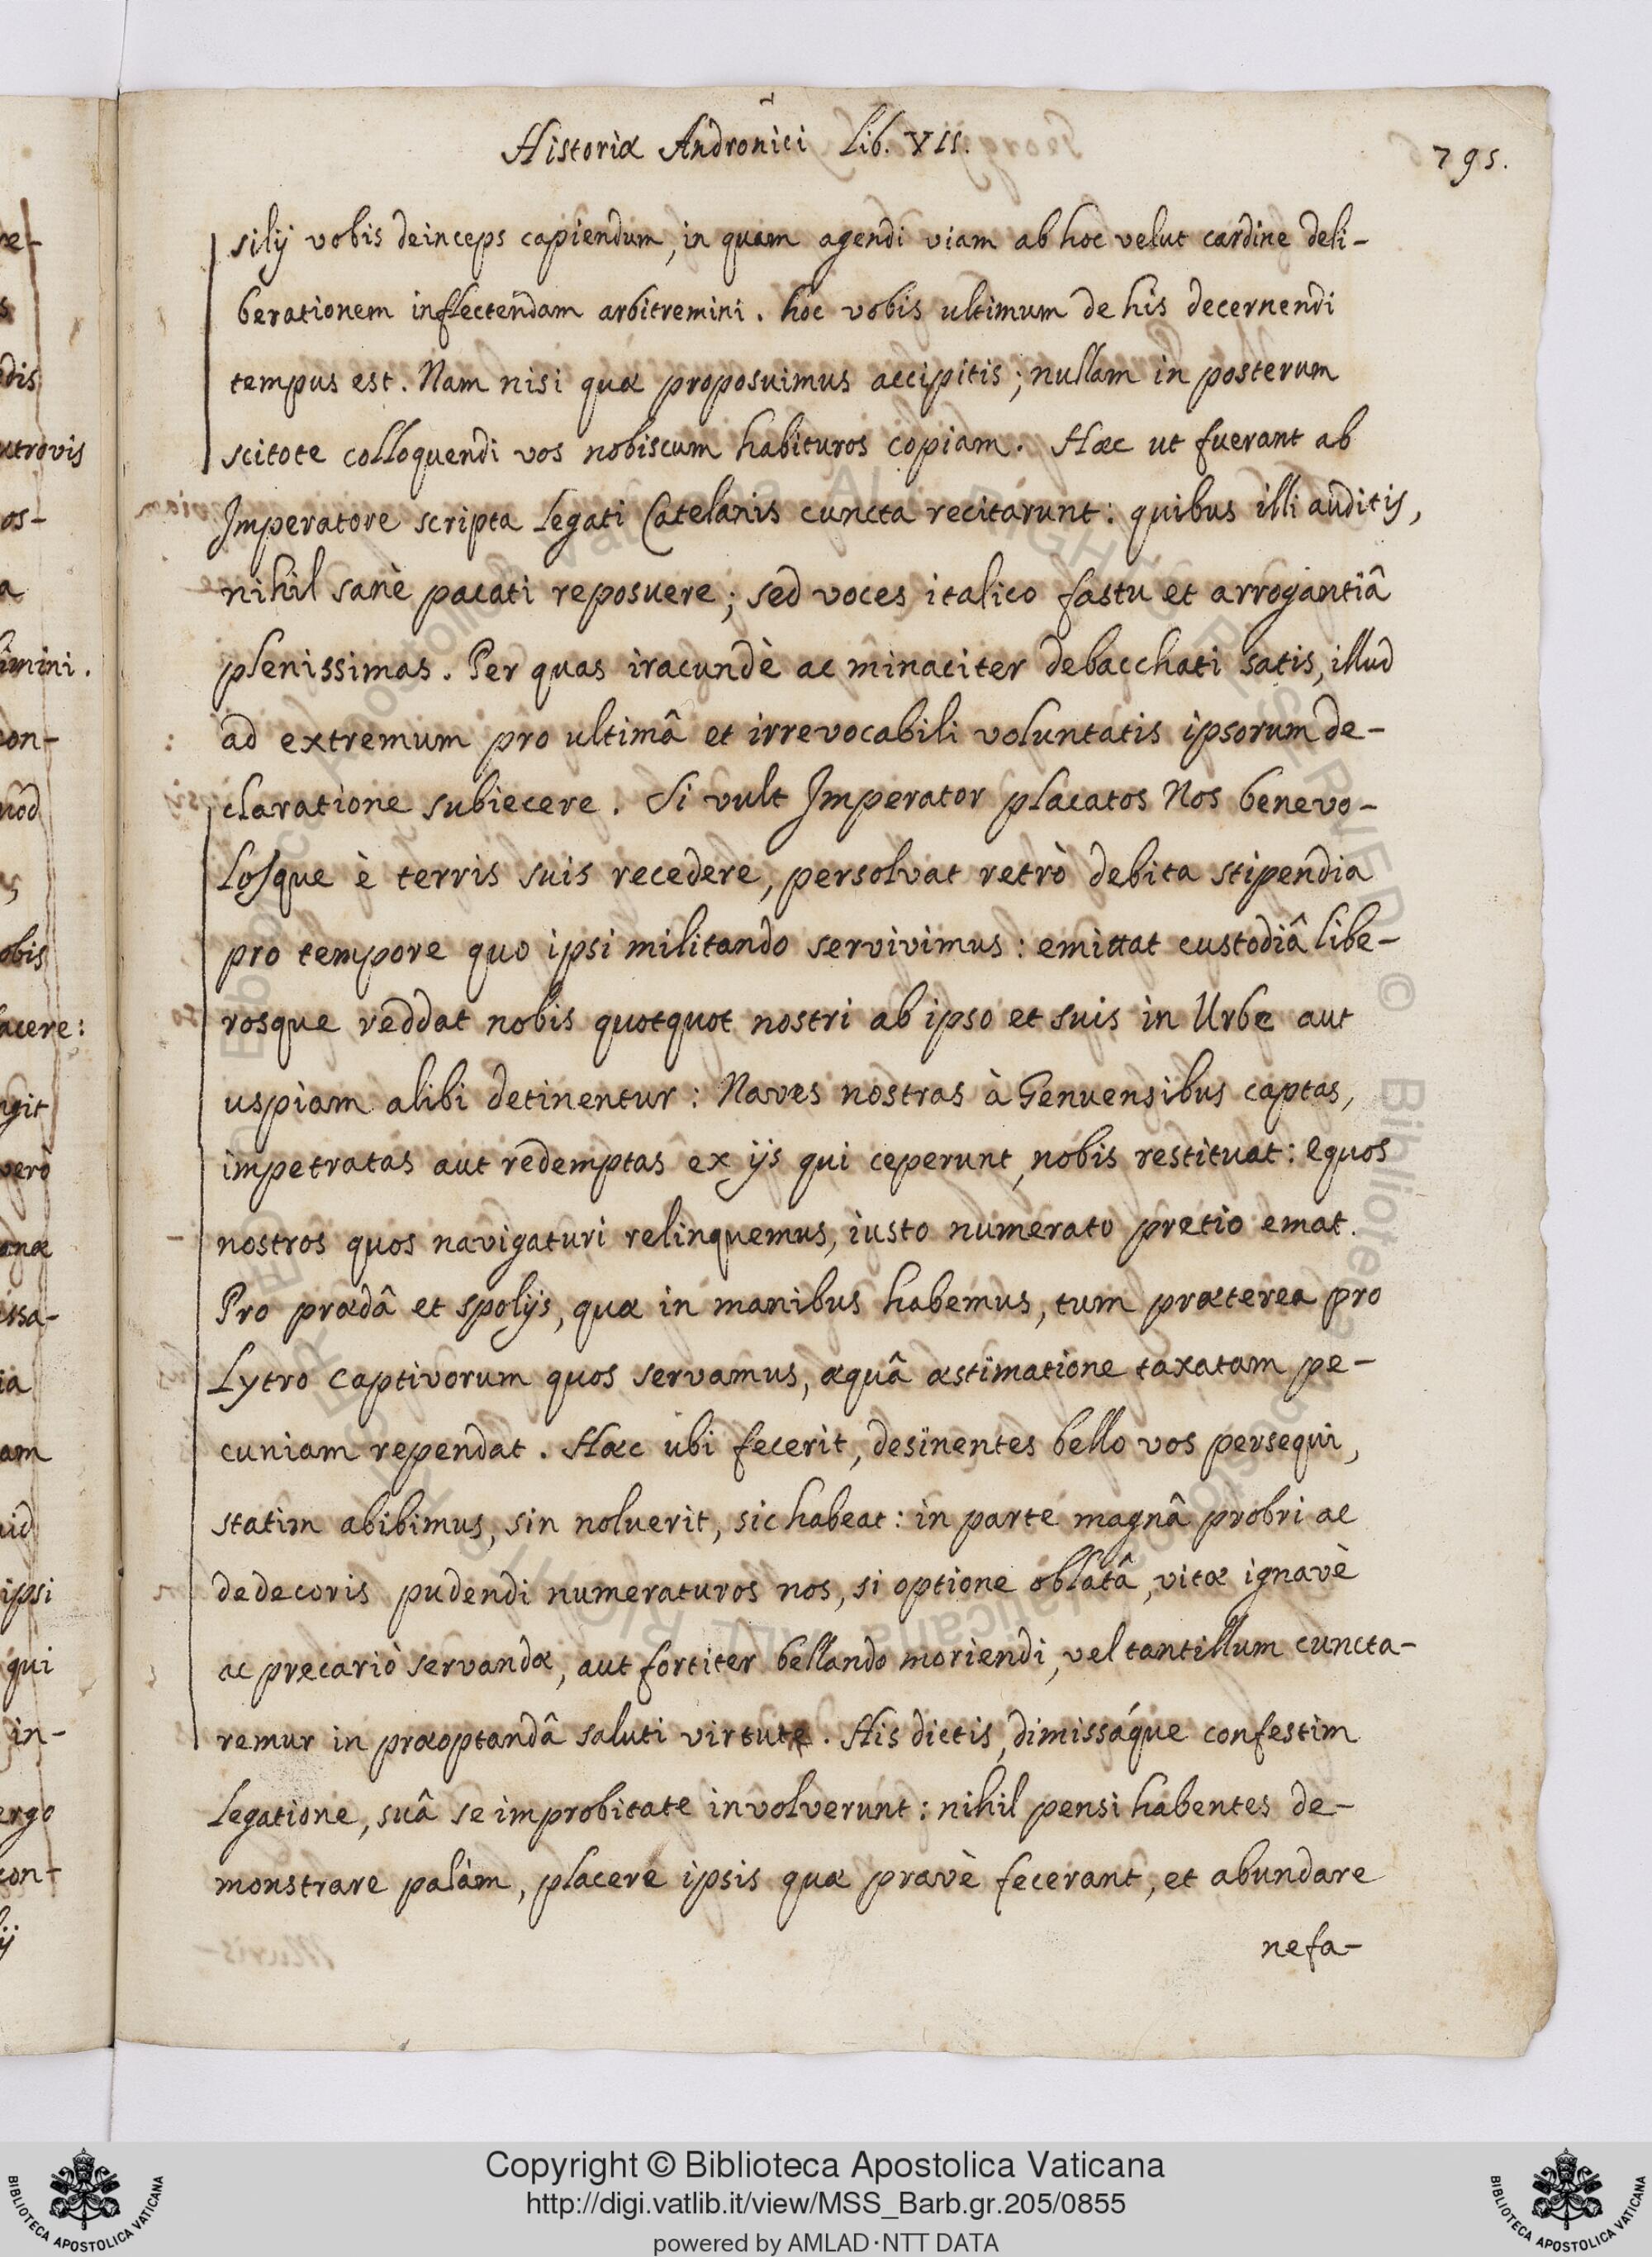 Historiæ Andronici Lib. VII.
795.
silij vobis deinceps capiendum, in quam agendi viam ab hoc velut cardine deli-
berationem inflectendam arbitremini. hoc vobis ultimum de his decernendi
tempus est. Nam nisi quæ proposuimus accipitis; nullam in posterum
scitote colloquendi vos nobiscum habituros copiam. Hæc ut fuerant ab
Imperatore scripta Legati Catelanis cuncta recitarunt: quibus illi auditis,
nihil sanè pacati reposuere; sed voces italico fastu et arrogantiâ
plenissimas. Per quas iracundè ac minaciter debacchati satis, illud
ad extremum pro ultimâ et irrevocabili voluntatis ipsorum de-
claratione subiecere. Si vult Imperator placatos Nos benevo-
losque è terris suis recedere, persolvat retrò debita stipendia
pro tempore quo ipsi militando servivimus: emittat custodiâ libe-
rosque reddat nobis quotquot nostri ab ipso et suis in Urbe aut
uspiam alibi detinentur: Naves nostras à Genuensibus captas,
impetratas aut redemptas ex ijs qui ceperunt, nobis restituat: equos
nostros quos navigaturi relinquemus, iusto numerato pretio emat.
Pro prædâ et spolijs, quæ in manibus habemus, tum præterea pro
Lytro captivorum quos servamus, æquâ æstimatione taxatam pe-
cuniam rependat. Hæc ubi fecerit, desinentes bello vos persequi,
statim abibimus, sin noluerit, sic habeat: in parte magnâ probri ac
dedecoris pudendi numeraturos nos, si optione oblatâ, vitæ ignavè
ac precariò servandæ, aut fortiter bellando moriendi, vel tantillum cuncta-
remur in præoptandâ saluti virtute. His dictis, dimissáque confestim
Legatione, suâ se improbitate involverunt: nihil pensi habentes de-
monstrare palàm, placere ipsis quæ pravè fecerant, et abundare
nefa-
re-
s
dis
utrovis
os-
a
imini.
on-
obis
acere:
ngit
verò
anæ
ssa-
ia
am
id
ipsi
qui
in-
ergo
con-
ij
Copyright © Biblioteca Apostolica Vaticana
http://digi.vatlib.it/view/MSS_Barb.gr.205/0855
powered by AMLAD·NTT DATA
BIBLIOTECA APOSTOLICA VATICANA
BIBLIOTECA APOSTOLICA VATICANA